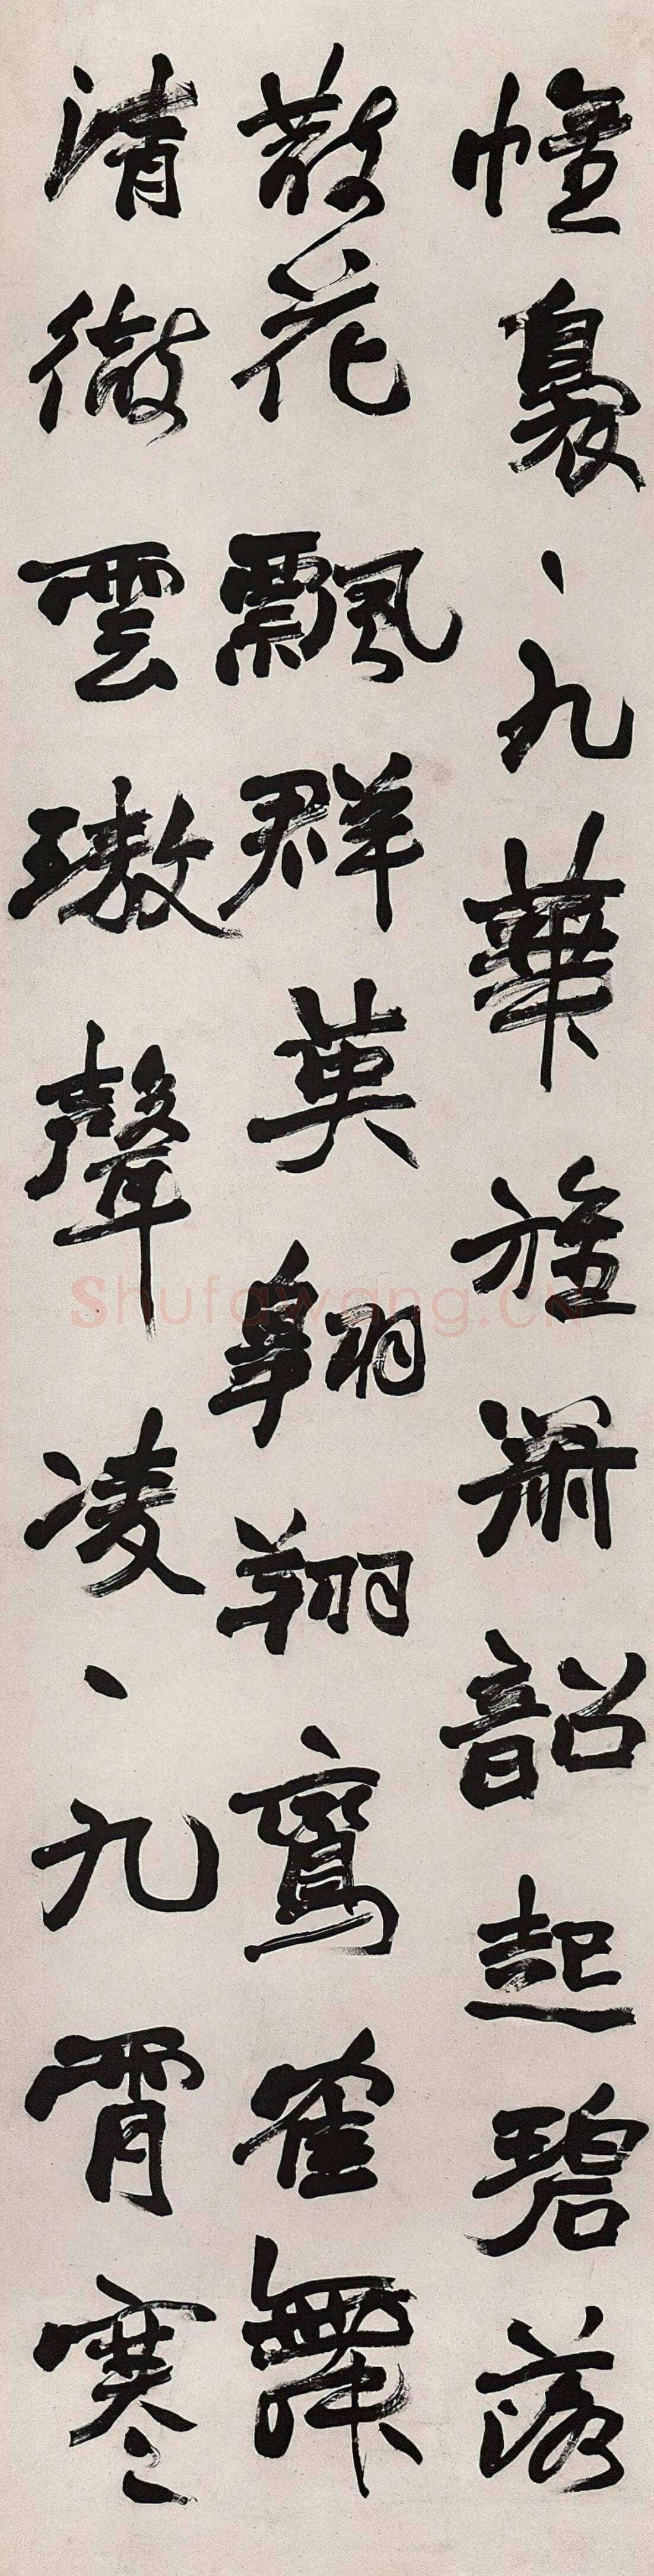 幢裊、九華旌簫韶起碧落
散花飄群英翱翔鸞隺舞
清徹雲璈聲凌、九霄寒
Shufawang.CN